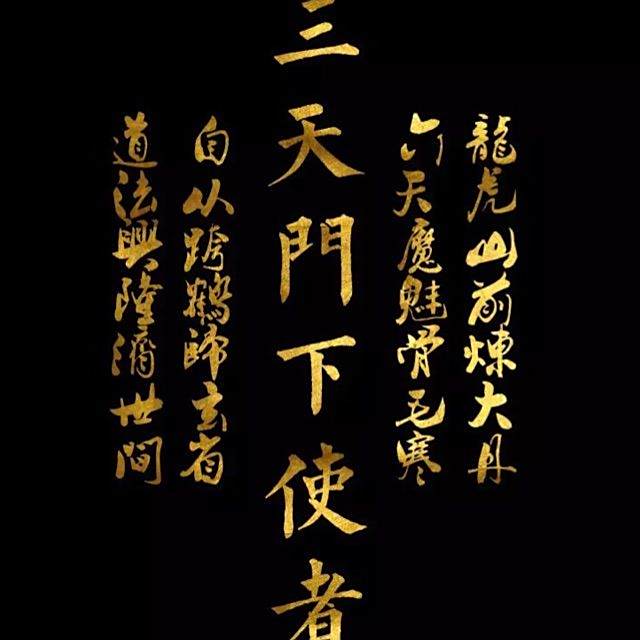 龍虎山前煉大丹
六天魔魅骨毛寒
三天門下使者
自从跨鶴歸玄省
道法興隆濟世間